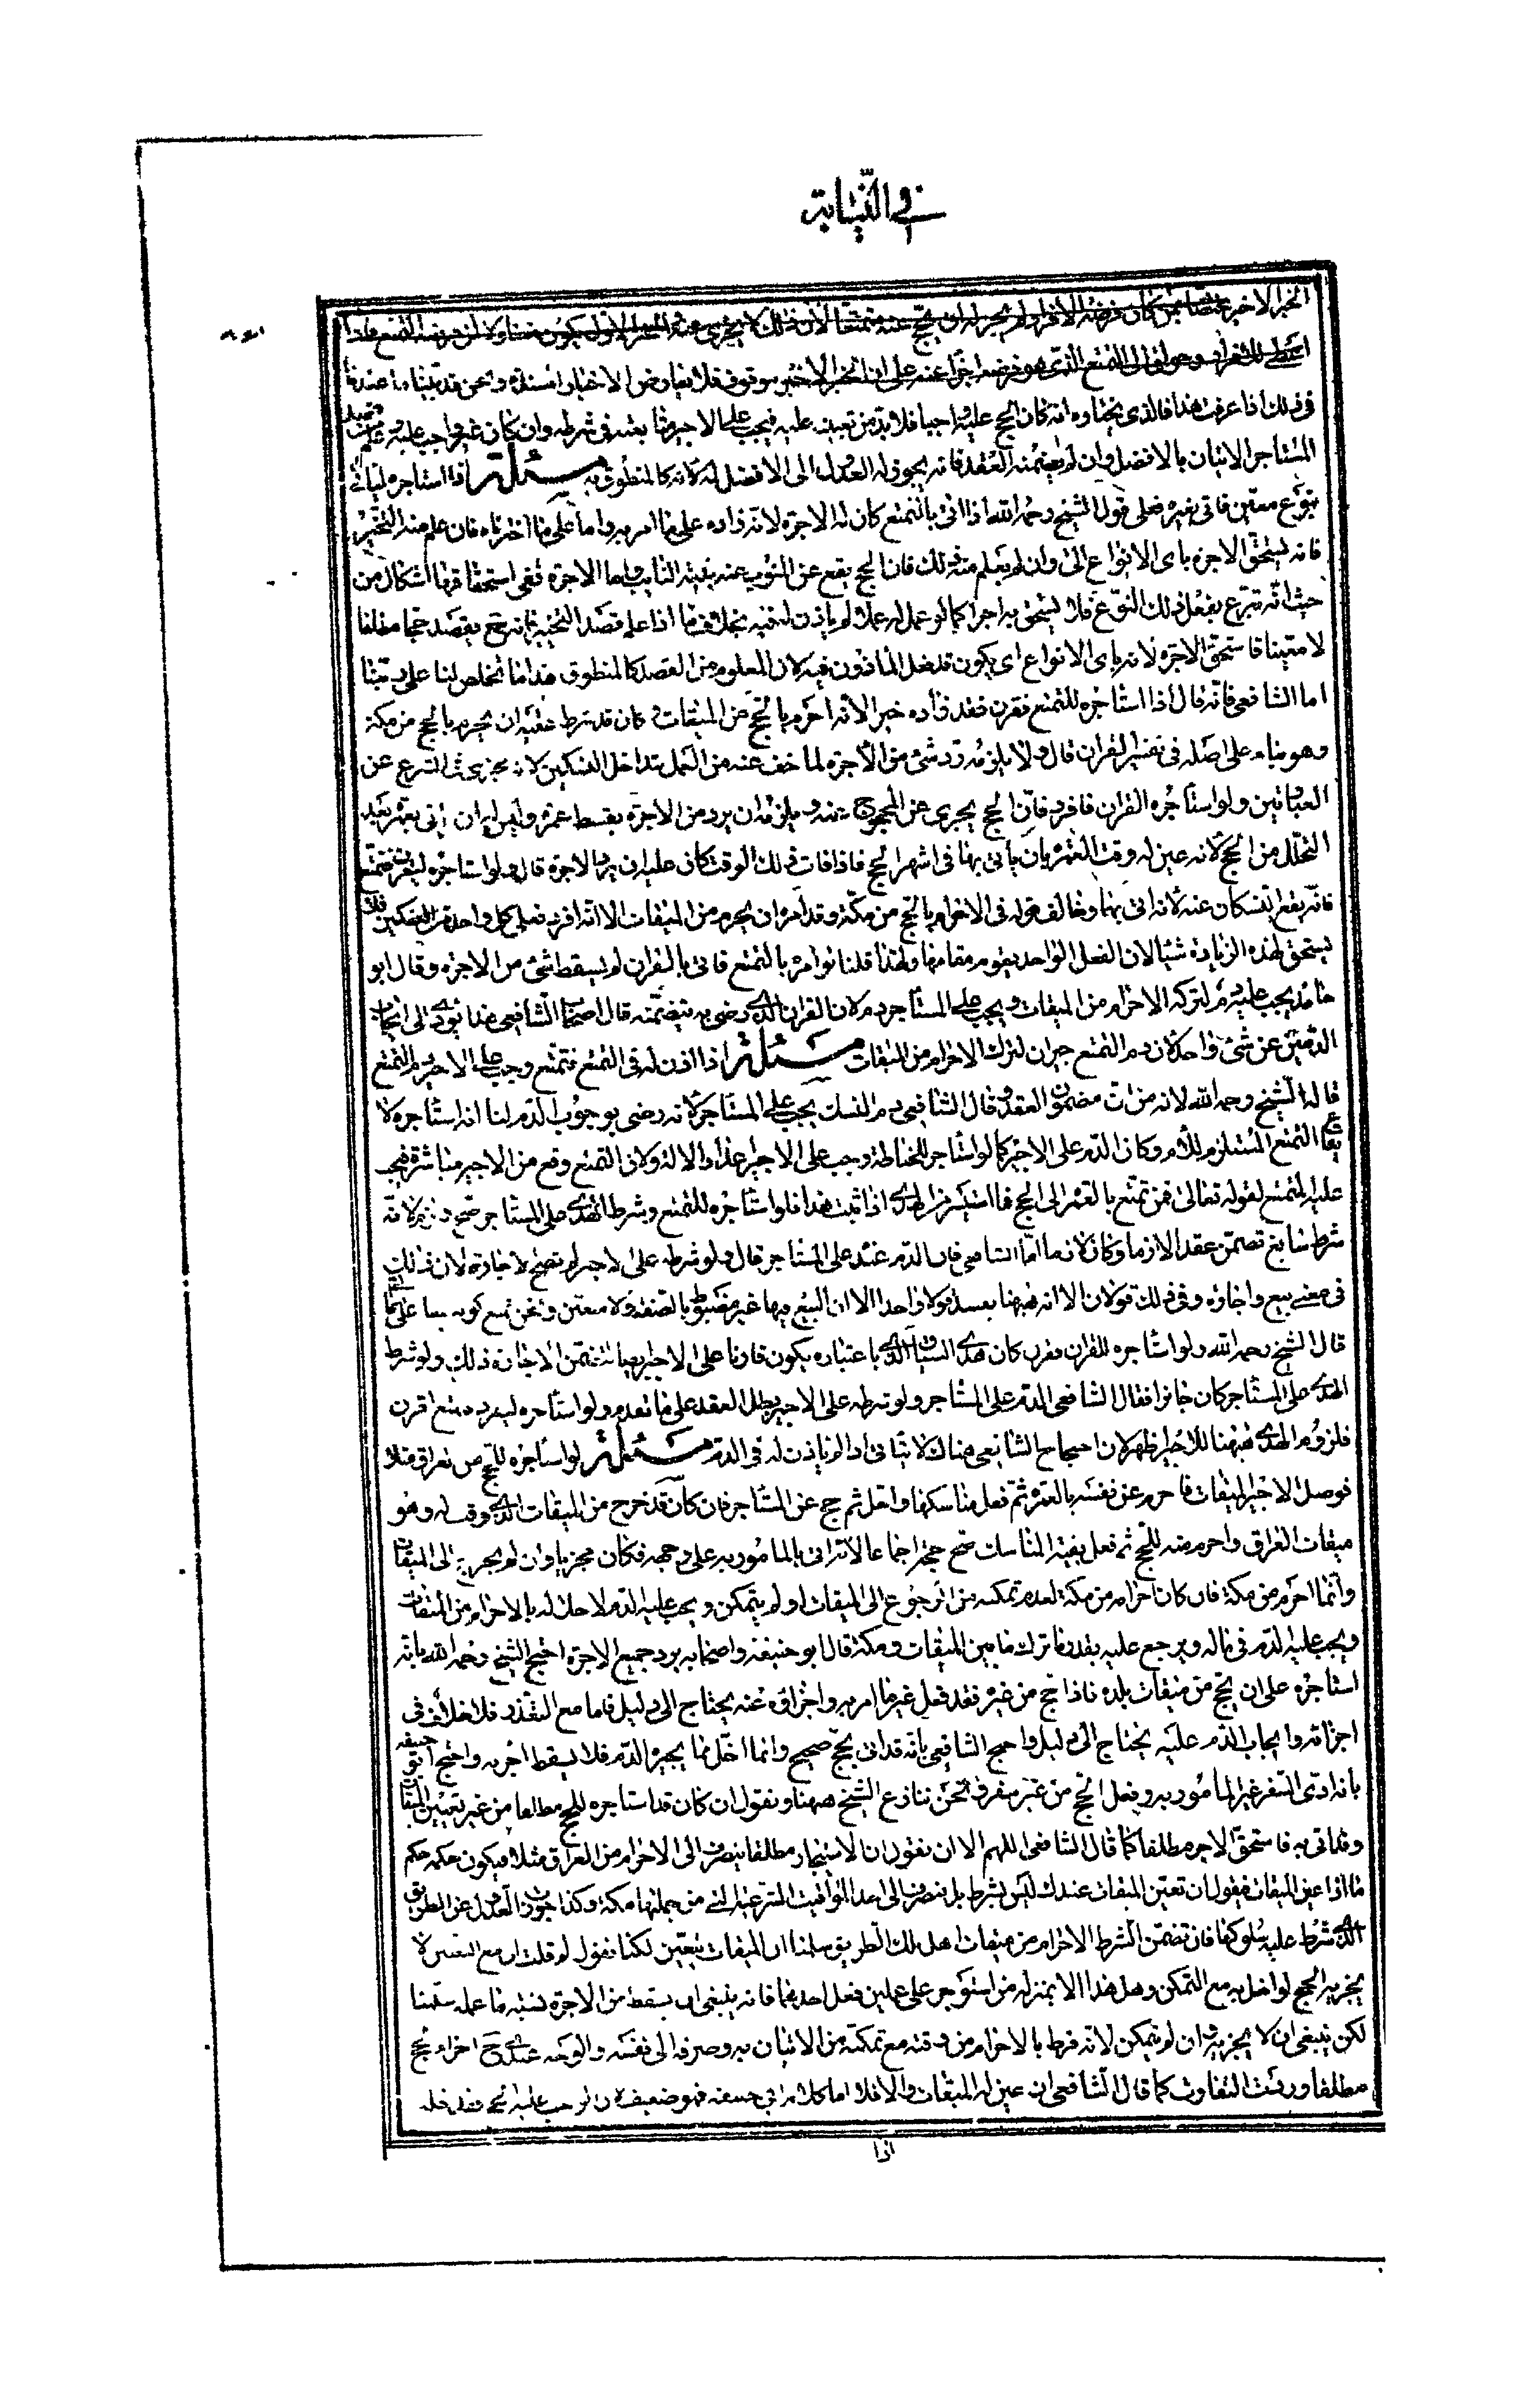 في النيابة
الخبر الاخير مختصا بمن كان فرضه الافراد لم يجز له ان يحج عنه متمتعا لان ذلك لا يجزي عنه الاول يكون التمتع فاذا
الى التمتع الذي هو فرضه اجزأ عنه على ان الخبر الاخير موقوف فلا يعارض الاخبار المسندة ونحن قد بينا ما عندنا
في ذلك اذا عرفت هذا فالذي نختاره انه كان الحج عليه واجبا فلا بد من تعيينه عليه فيجب على الاجير ما يعتمد في شرطه وان كان غير واجب عليه
المستاجر الاتيان بالافضل وان لم يضمنه العقد فانه يجوز له العدول الى الافضل لانه كالمنطوق به مسئلة اذا استاجره لياتي
بنوع معين فاتى بغيره فعلى قول الشيخ رحمه الله اذا اتى بالتمتع كان له الاجرة لانه زاده على ما امر به واما على ما اخترناه فان علم منه التخيير
فانه يستحق الاجرة باى الانواع اتى وان لم يعلم منه ذلك فان الحج يقع عن المنوب عنه بنية النايب واما الاجرة ففي استحقاقها اشكال من
حيث انه تبرع بفعل ذلك النوع فلا يستحق به اجرا كما لو عمل له عملا لم ياذن له فيه بخلاف ما اذا علم قصد التخيير فانه يقصد حجا مطلقا
لا معينا فاستحق الاجرة لانه باى الانواع اتى يكون قد فعل الماذون فيه لان المعلوم من القصد كالمنطوق هذا ما تخلص لنا على
اما الشافعي فانه قال اذا استاجره للتمتع فقرن فقد زاده خيرا لانه احرم بالحج من الميقات وكان قد شرط عليه ان يحرم بالحج من مكة
وهو بناء على اصله في تفسير القران قال ولا يلزمه رد شئ من الاجرة لما خف عنه من العمل بتداخل النسكين لانه يجزي في الشرع عن
العبادتين ولو استاجره القران فافرد فان الحج يجزي عن المحجوج عنه ويلزمه ان يرد من الاجرة بقسط عمرة وليس له ان ياتي بعمرة بعد
التحلل من الحج لانه عين له وقت العمرة بان ياتي بها في اشهر الحج فاذا فات ذلك الوقت كان عليه ان يرد الاجرة قال ولو استاجره ليقرن فتمتع
فانه يقع النسكان عنه لانه اتى بهما وخالف قوله في الاحرام بالحج من مكة وقد امره ان يحرم من الميقات الا انه افرد فعل كل واحد من النسكين فلا
يستحق لهذه الزيادة شيئا لان الفعل الواحد يقوم مقامهما ولهذا قلنا لو امره بالتمتع فاتى بالقران لم يسقط شئ من الاجرة وقال ابو
حامد يجب عليه دم لتركه الاحرام من الميقات ويجب على المستاجر دم لان القران الذي رضى به يتضمنه قال اصحاب الشافعي هذا يؤدي الى ايجاب
الدمين عن شئ واحد لان دم التمتع جبران لترك الاحرام من الميقات مسئلة اذا اذن له في التمتع فتمتع وجب على الاجير دم التمتع
قاله الشيخ رحمه الله لانه من مضمون العقد وقال الشافعي دم النسك يجب على المستاجر لانه رضى بوجوب الدم لنا انه استاجره لا
يقاع التمتع المستلزم للدم وكان الدم على الاجير كما لو استاجر للخياطة وجب على الاجير هذا والالة ولان التمتع وقع من الاجير مباشرة فيجب
عليه التمتع لقوله تعالى فمن تمتع بالعمرة الى الحج فما استيسر من الهدي اذا ثبت هذا فلو استاجره للتمتع وشرط الهدي على المستاجر صح لانه
شرط سايغ تضمن عقدا لازما وكان لازما اما الشافعي فان الدم عنده على المستاجر قال ولو شرطه على الاجير لم تصح الاجارة لان ذلك
في معنى بيع واجارة وفي ذلك قولان الا انه ههنا يفسد قولا واحدا الا ان البيع فيها غير مضبوط بالصفة ولا معين ونحن نمنع كونه بيعا على
قال الشيخ رحمه الله ولو استاجره للقران فقرن كان هدي السياق الذي باعتباره يكون قارنا على الاجير لتضمن الاجارة ذلك ولو شرط
الهدي على المستاجر كان جائزا فقال الشافعي الدم على المستاجر ولو شرطه على الاجير بطل العقد على ما تقدم ولو استاجره ليفرد فتمتع او قرن
فلزوم الهدي ههنا للاجير اظهر لان احتجاج الشافعي هناك لا يتاتى اذا لم ياذن له في الدم مسئلة لو استاجره للحج من عراق مثلا
فوصل الاجير الميقات فاحرم عن نفسه بالعمرة ثم فعل مناسكها واحل ثم حج عن المستاجر فان كان قد خرج من الميقات الذي وقت له وهو
ميقات العراق واحرم منه للحج ثم فعل بقية المناسك صح حجه اجماعا لانه اتى بالمامور به على وجهه فكان مجزيا وان لم يخرج الى الميقات
وانما احرم من مكة فان كان احرامه من مكة لعدم تمكنه من الرجوع الى الميقات او لم يتمكن ويجب عليه الدم لاخلاله بالاحرام من الميقات
ويجب عليه الدم في ماله ويرجع عليه بقدر ما ترك ما بين الميقات ومكة قال ابو حنيفة واصحابه يرد جميع الاجرة احتج الشيخ رحمه الله بانه
استاجره على ان يحج من ميقات بلده فاذا حج من غيره فقد فعل غير ما امر به واجزاؤه عنه يحتاج الى دليل فاما مع التعذر فلا خلاف في
اجزائه وايجاب الدم عليه يحتاج الى دليل واحتج الشافعي بانه قد اتى بحج صحيح وانما اخل بما يجبره الدم فلا يسقط اجرته واحتج ابو حنيفة
بانه ادى السفر غير المامور به وفعل الحج من غير سفر ونحن ننازع الشيخ ههنا ونقول ان كان قد استاجره للحج مطلقا من غير تعيين الميقات
وقد اتى به فاستحق الاجر مطلقا كما قال الشافعي اللهم الا ان نقول ان الاستيجار مطلقا ينصرف الى الاحرام من العراق مثلا فيكون حكمه حكم
ما اذا عين الميقات فيقول ان تعيين الميقات عندك ليس بشرط بل ينصرف الى احد المواقيت الشرعية التي من جملتها مكة وكذا جوزت العدول عن الطريق
الذي شرط عليه سلوكها فان تضمن الشرط الاحرام من ميقات اهل ذلك الطريق سلمنا ان الميقات يتعين لكنا نقول لم قلت ان مع التعين لا
يجزيه الحج لو اخل به مع التمكن وهل هذا الا بمنزلة من استؤجر على عملين فعل احدهما فانه ينبغي ان يسقط من الاجرة بنسبة ما عمله سلمنا
لكن ينبغي ان لا يجزيه وان لم يتمكن لانه فرط بالاحرام من وقته مع تمكنه من الاتيان به وصرفه الى نفسه والوجه عندي اجزاء الحج
مطلقا وردت التفاوت كما قال الشافعي ان عين له الميقات والا فلا اما كلام ابي حنيفة فهو ضعيف
اذا